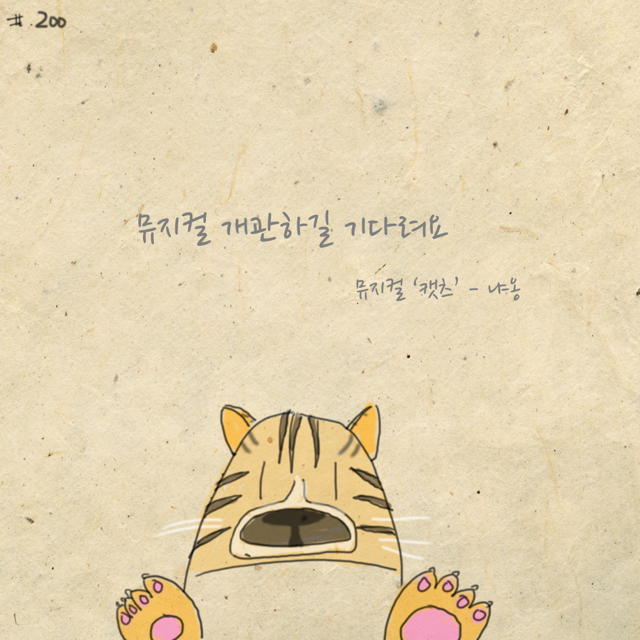 # .200
뮤지컬 개관하길 기다려요
뮤지컬 '캣츠' - 냐옹